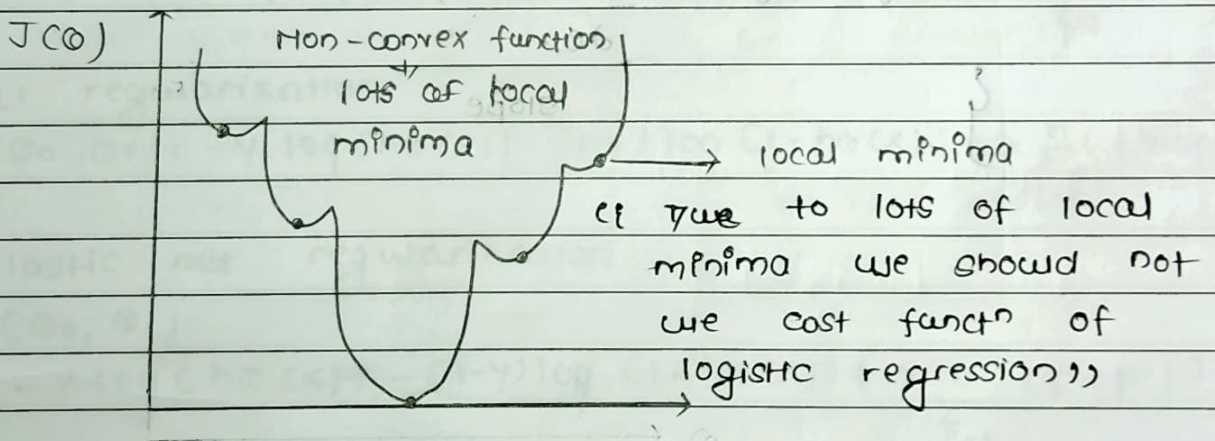 J(θ)
Non-convex function
lots of local
minima
local minima
" Due to lots of local
minima we should not
use cost functn of
logistic regression"